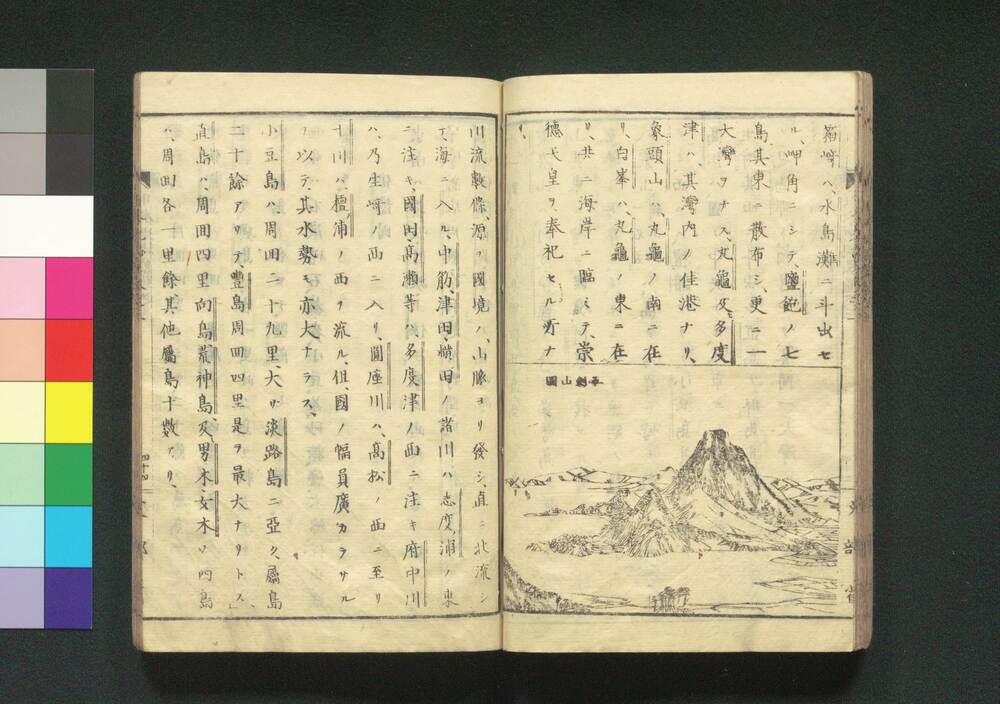 箱崎ハ、水島灘ニ斗出セ
ル、岬角ニシテ、鹽飽ノ七
島其東ニ散布シ、更ニ一
大灣ヲナス、丸龜及多度
津ハ、其灣内ノ佳港ナリ、
象頭山ハ、丸龜ノ南ニ在
リ、白峯ハ、丸龜ノ東ニ在
リ、共ニ海岸ニ臨ミテ、崇
德天皇ヲ奉祀セル所ナ
リ、
山圖
川流數條、源ヲ國境ノ山脈ヨリ發シ、直ニ北流シ
テ、海ニ入ル、中筋、津田、横田ノ諸川ハ志度浦ノ東
ニ注キ、國田、高瀬等ハ、多度津ノ西ニ注キ府中川
ハ、乃生崎ノ西ニ入リ、圓座川ハ、高松ノ西ニ至リ
十川ハ、檀浦ノ西ヲ流ル但國ノ幅員廣カラサル
ヲ以テ、其水勢モ亦大ナラス、
小豆島ハ、周回二十九里、大サ淡路島ニ亞ク、屬島
二十餘アリテ、豐島周回四里是ヲ最大ナリトス、
直島ハ、周回四里向島荒神島、及男木、女木ノ四島
ハ、周回各一里餘其他屬島十數アリ、